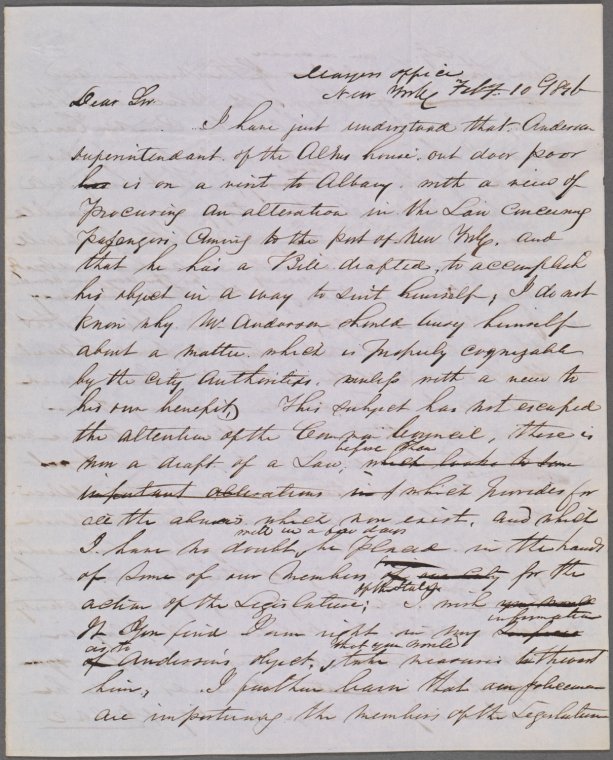 Mayors office
New York Feby. 10 1846
Dear Sir
I have just understood that Anderson
superintendant of the Alms house out door poor
has is on a visit to Albany. with a view of
procuring an alteration in the Law concerning
passengers coming to the port of New York, and
that he has a Bill drafted, to accomplish
his object in a way to suit himself, I do not
know why Mr Anderson should busy himself
about a matter which is properly cognizable
by the City Authorities. unless with a view to
his own benefit, This subject has not escaped
the attention of the Common Council, there is
before them
now a draft of a Law, which looks to some
important alterations in & which provides for
all the abuses which now exist, and which
will in a few days
I have no doubt, be placed in the hands
of some of our members of our City for the
of the State
action of the Legislature; I wish you would
information
If you find I am right in my
as to that you would
of Anderson's object, take measures to thwart
him, I further learn that our policemen
are importuning the members of the Legislature